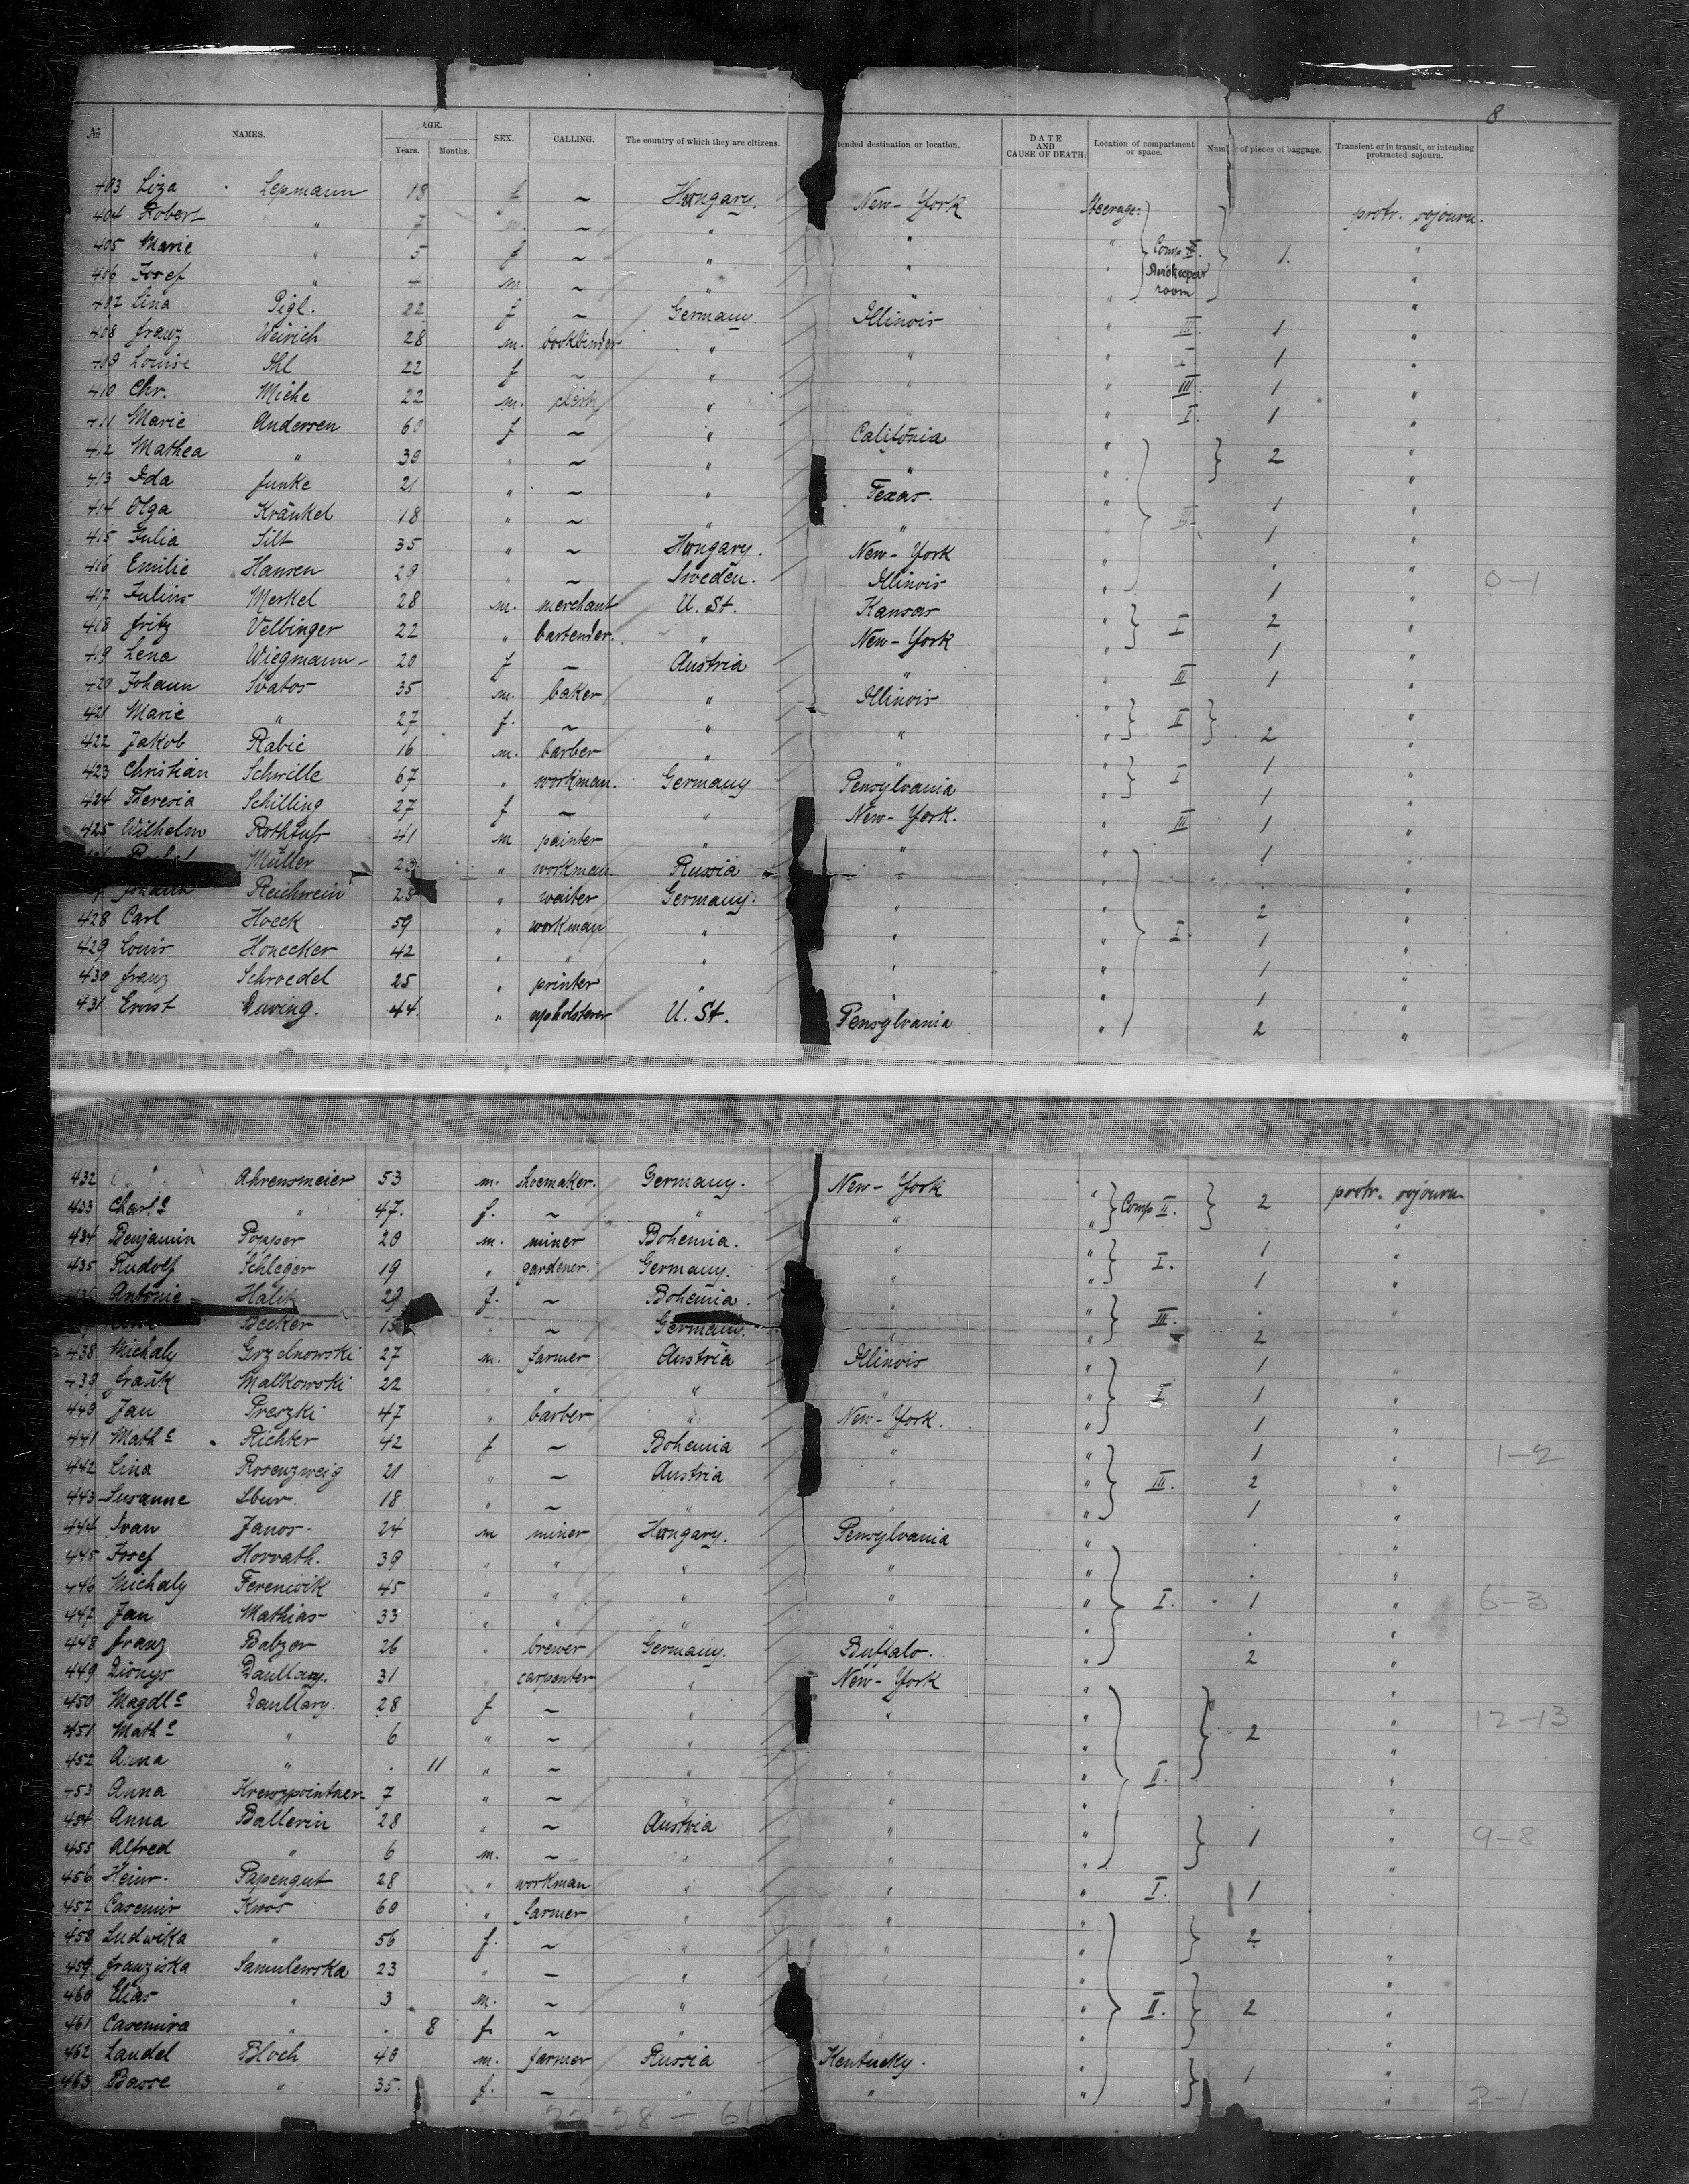 8
№ NAMES. AGE. Years. Months. SEX. CALLING. The country of which they are citizens. tended destination or location. DATE AND CAUSE OF DEATH. Location of compartment or space. Num r of pieces of baggage. Transient or in transit, or intending protracted sojourn.
403 Liza Lepmann 18 f ~ Hungary. New-York Steerage: protr. sojourn.
404 Robert " 7 m. ~ " " "
405 Marie " 5 f ~ " " " Comp II. 1. "
406 Josef " — m ~ " " " room "
407 Lina Pigl. 22 f ~ Germany Illinois " III. 1 "
408 Franz Weirich 28 m. bookbinder " " " I 1 "
409 Louise Ahl 22 f ~ " " " III. 1 "
410 Chr. Miehe 22 m. clerk " " " I. 1 "
411 Marie Andersen 60 f ~ " Califonia " 2 "
412 Mathea " 30 " ~ " " " "
413 Ida Funke 21 " ~ " Texas. " 1 "
414 Olga Kränkel 18 " ~ " " " III 1 "
415 Julia Silt 35 " ~ Hungary. New-York " . "
416 Emilie Hansen 29 " ~ Sweden. Illinois " 1 " 0-1
417 Julius Merkel 28 m. merchant U. St. Kansas " I 2 "
418 Fritz Velbinger 22 " bartender. " New-York " 1 "
419 Lena Wiegmann 20 f — Austria " " III 1 "
420 Johann Svatos 35 m. baker " Illinois " II 2 "
421 Marie " 27 f. ~ " " " "
422 Jakob Rabic 16 m. barber " " " I 1 "
423 Christian Schwille 67 " workman. Germany Pensylvania " 1 "
424 Theresia Schilling 27 f — " New-York. " III 1 "
425 Wilhelm Rothfuss 41 m painter " " " 1 "
Müller 23 " workman Russia " " . "
Johann Reichwein 25 " waiter Germany. " " 2 "
428 Carl Hoeck 59 " workman " " " I. 1 "
429 Louis Honecker 42 " " " " " 1 "
430 Franz Schroedel 25 " printer " " " 1 "
431 Ernst Duving. 44 " upholsterer U. St. Pensylvania " 2 "
432 Ahrensmeier 53 m. shoemaker. Germany. New-York " Comp II. 2 protr. sojourn
433 Charle " 47. f. ~ " " " "
434 Benjamin Popper 20 m. miner Bohemia. " " I. 1 "
435 Rudolf Schleger 19 " gardener. Germany. " " 1 "
Antonie Halik 29 f. ~ Bohemia. " " III. . "
Becker 15 ~ Germany. " " 2 "
438 Michaly Grzelnowski 27 m. farmer Austria Illinois " 1 "
439 Frank Malkowski 22 " " " " " I 1 "
440 Jan Preszki 47 " barber " New-York. " 1 "
441 Mathe Richter 42 f ~ Bohemia " " 1 " 1-2
442 Lina Rosenzweig 21 " ~ Austria " " III. 2 "
443 Susanne Sbur. 18 " ~ " " " 1 "
444 Ivan Janos. 24 m miner Hungary. Pensylvania " . "
445 Josef Horvath. 39 " " " " " . "
446 Michaly Ferenisik 45 " " " " " I. 1 " 6-3
447 Jan Mathias 33 " " " " . "
448 Franz Babzer 26 " brewer Germany. Buffalo. " 2 "
449 Dionys Daullary. 31 carpenter " New-York " "
450 Magdle Daullary. 28 f ~ " " " 2 " 12-13
451 Mathe " 6 " ~ " " "
452 Anna " . 11 " ~ " " " II. "
453 Anna Krewzpointner 7 " ~ " " " . "
454 Anna Ballerin 28 " ~ Austria " " 1 " 9-8
455 Alfred " 6 m. ~ " " " "
456 Heinr. Papengut 28 " workman " " " I. 1
457 Casemir Kwos 60 " farmer " " " 2
458 Ludwika " 56 f. ~ " " " "
459 Franziska Samulewska 23 " — " " " "
460 Elias " 3 m. ~ " " II. 2 "
461 Casemira " . 8 f ~ " " " "
462 Laudel Bloch 40 m. farmer Russia Kentucky. " 1 "
463 Basse " 35. f. ~ " " " " 2-1
22-28-61